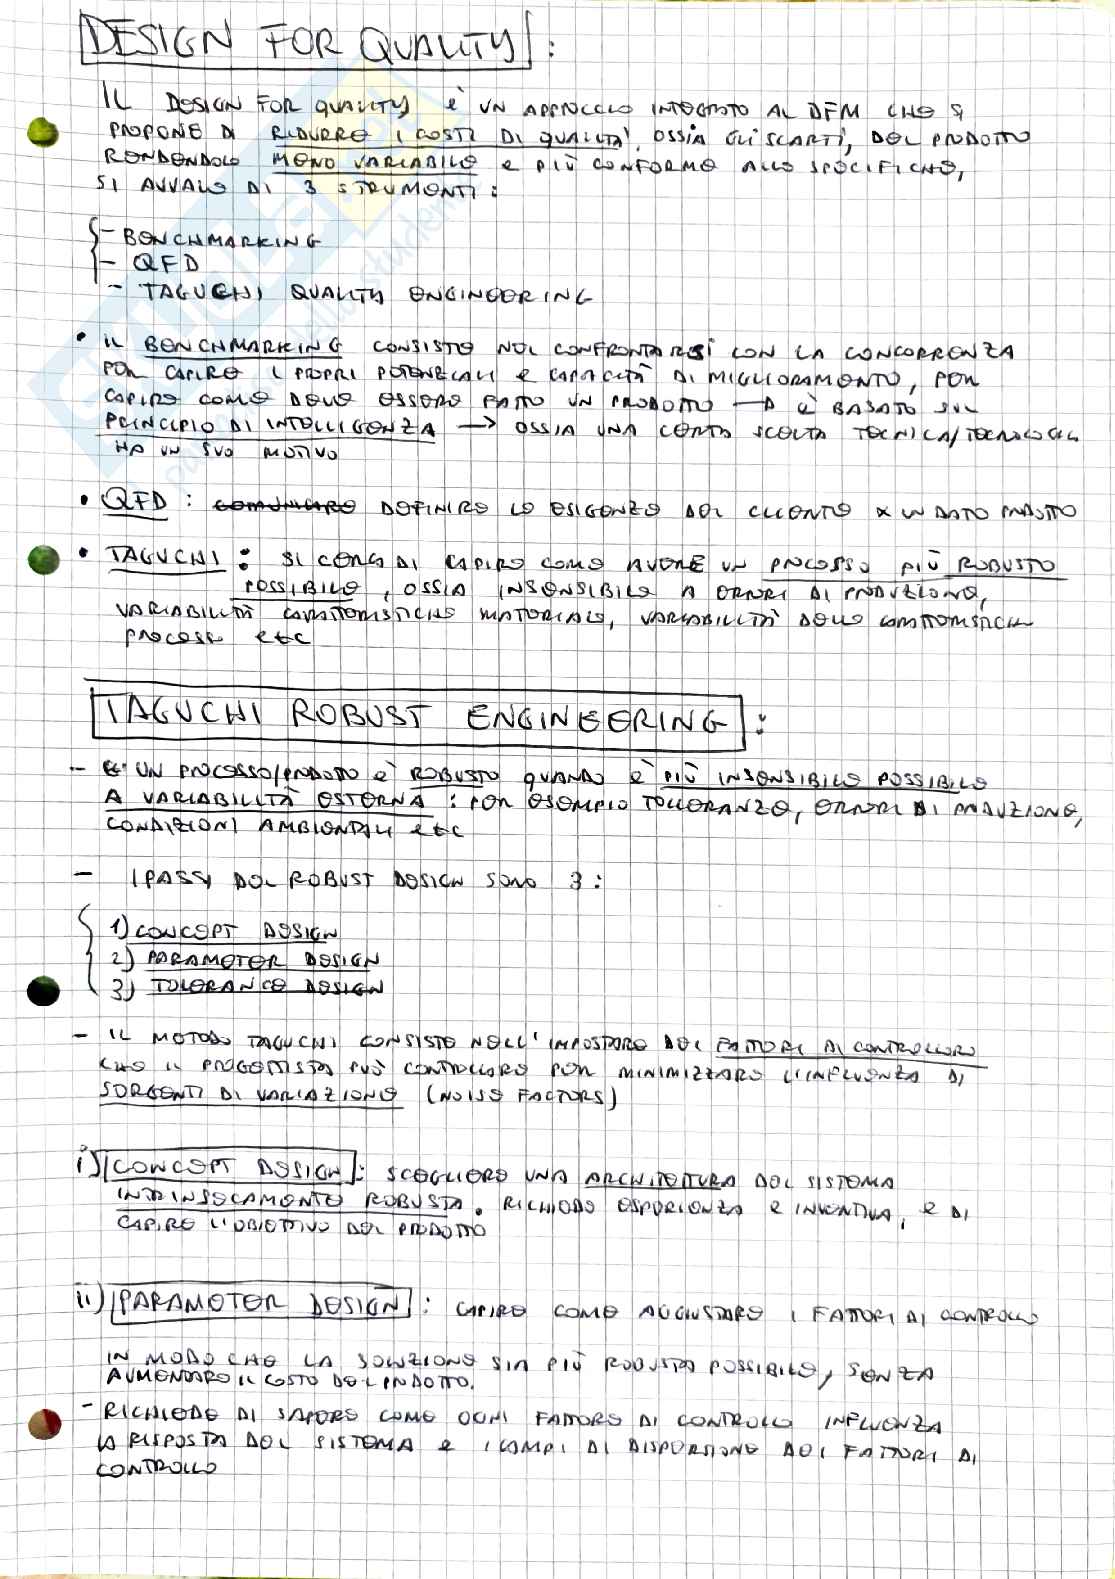 DESIGN FOR QUALITY :
IL DESIGN FOR QUALITY È UN APPROCCIO INTEGRATO AL DFM CHE SI
PROPONE DI RIDURRE I COSTI DI QUALITÀ, OSSIA GLI SCARTI, DEL PRODOTTO
RENDENDOLO MENO VARIABILE E PIÙ CONFORME ALLE SPECIFICHE,
SI AVVALE DI 3 STRUMENTI :
- BENCHMARKING
- QFD
- TAGUCHI QUALITY ENGINEERING
• IL BENCHMARKING CONSISTE NEL CONFRONTARSI CON LA CONCORRENZA
PER CAPIRE I PROPRI POTENZIALI E CAPACITÀ DI MIGLIORAMENTO, PER
CAPIRE COME DEVE ESSERE FATTO UN PRODOTTO → È BASATO SUL
PRINCIPIO DI INTELLIGENZA → OSSIA UNA CERTA SCELTA TECNICA/TECNOLOGICA
HA UN SUO MOTIVO
• QFD : COMUNICARE DEFINIRE LE ESIGENZE DEL CLIENTE X UN DATO PRODOTTO
• TAGUCHI : SI CERCA DI CAPIRE COME AVERE UN PROCESSO PIÙ ROBUSTO
POSSIBILE, OSSIA INSENSIBILE A ERRORI DI PRODUZIONE,
VARIABILITÀ CARATTERISTICHE MATERIALE, VARIABILITÀ DELLE CARATTERISTICHE
PROCESSO ETC
TAGUCHI ROBUST ENGINEERING :
- UN PROCESSO/PRODOTTO È ROBUSTO QUANDO È PIÙ INSENSIBILE POSSIBILE
A VARIABILITÀ ESTERNA : PER ESEMPIO TOLLERANZE, ERRORI DI PRODUZIONE,
CONDIZIONI AMBIENTALI ETC
- I PASSI DEL ROBUST DESIGN SONO 3 :
1) CONCEPT DESIGN
2) PARAMETER DESIGN
3) TOLERANCE DESIGN
- IL METODO TAGUCHI CONSISTE NELL'IMPOSTARE DEI FATTORI DI CONTROLLORE
CHE IL PROGETTISTA PUÒ CONTROLLARE PER MINIMIZZARE L'INFLUENZA DI
SORGENTI DI VARIAZIONE (NOISE FACTORS)
i) CONCEPT DESIGN : SCEGLIERE UNA ARCHITETTURA DEL SISTEMA
INTRINSECAMENTE ROBUSTA. RICHIEDE ESPERIENZA E INVENTIVA, E DI
CAPIRE L'OBIETTIVO DEL PRODOTTO
ii) PARAMETER DESIGN : CAPIRE COME AGGIUSTARE I FATTORI DI CONTROLLO
IN MODO CHE LA SOLUZIONE SIA PIÙ ROBUSTA POSSIBILE, SENZA
AUMENTARE IL COSTO DEL PRODOTTO.
- RICHIEDE DI SAPERE COME OGNI FATTORE DI CONTROLLO INFLUENZA
LA RISPOSTA DEL SISTEMA E I CAMPI DI DISPERSIONE DEI FATTORI DI
CONTROLLO